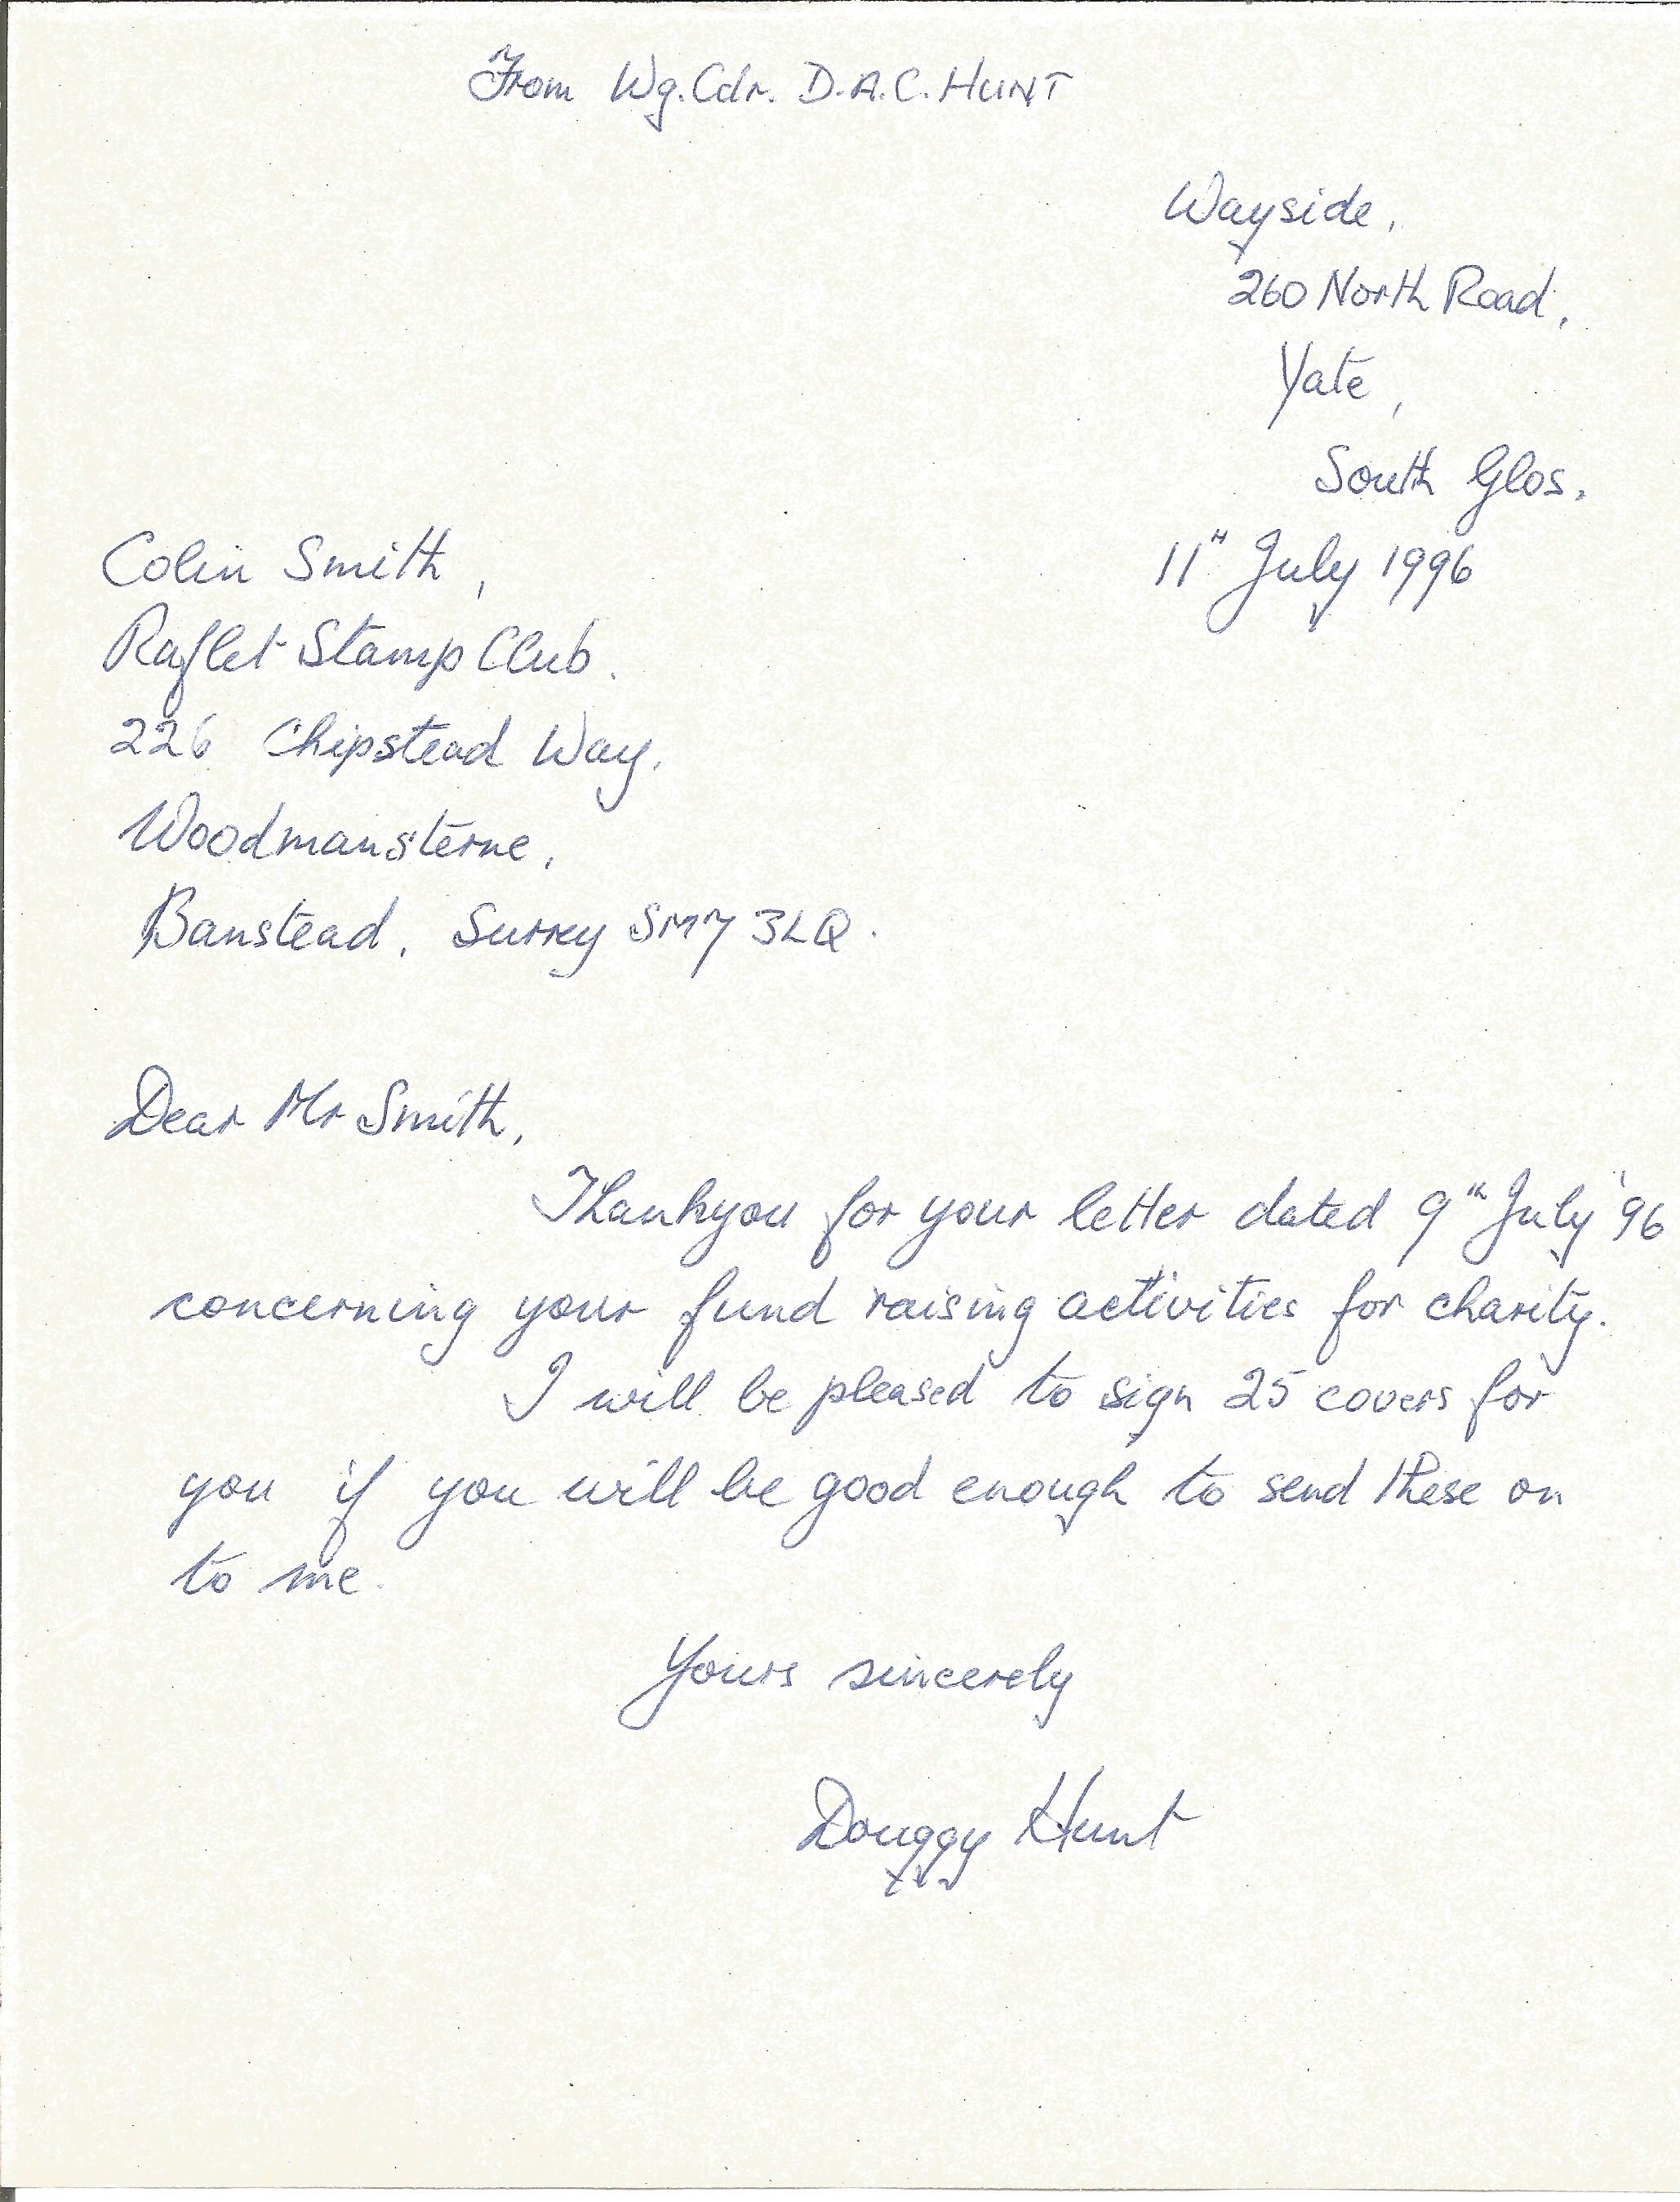 From Wg. Cdr. D.A.C. HUNT
Wayside,
260 North Road,
Yate,
South Glos.
11th July 1996
Colin Smith,
Raflet Stamp Club.
226 Chipstead Way,
Woodmansterne,
Banstead, Surrey SM7 3LQ.
Dear Mr Smith,
Thankyou for your letter dated 9th July '96
concerning your fund raising activities for charity.
I will be pleased to sign 25 covers for
you if you will be good enough to send these on
to me.
Yours sincerely
Douggy Hunt